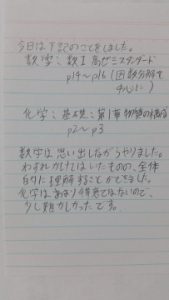 今日は下記のことをしました。
数学：数I 高ゼミスタンダード
p14～p16（因数分解を
中心に）
化学：基礎：第1章 物質の構成
p2～p3
数学は思い出しながらやりました。
わすれかけてはいたものの、全体
的に理解することができました。
化学はあまり得意ではないので、
少し難しかったです。